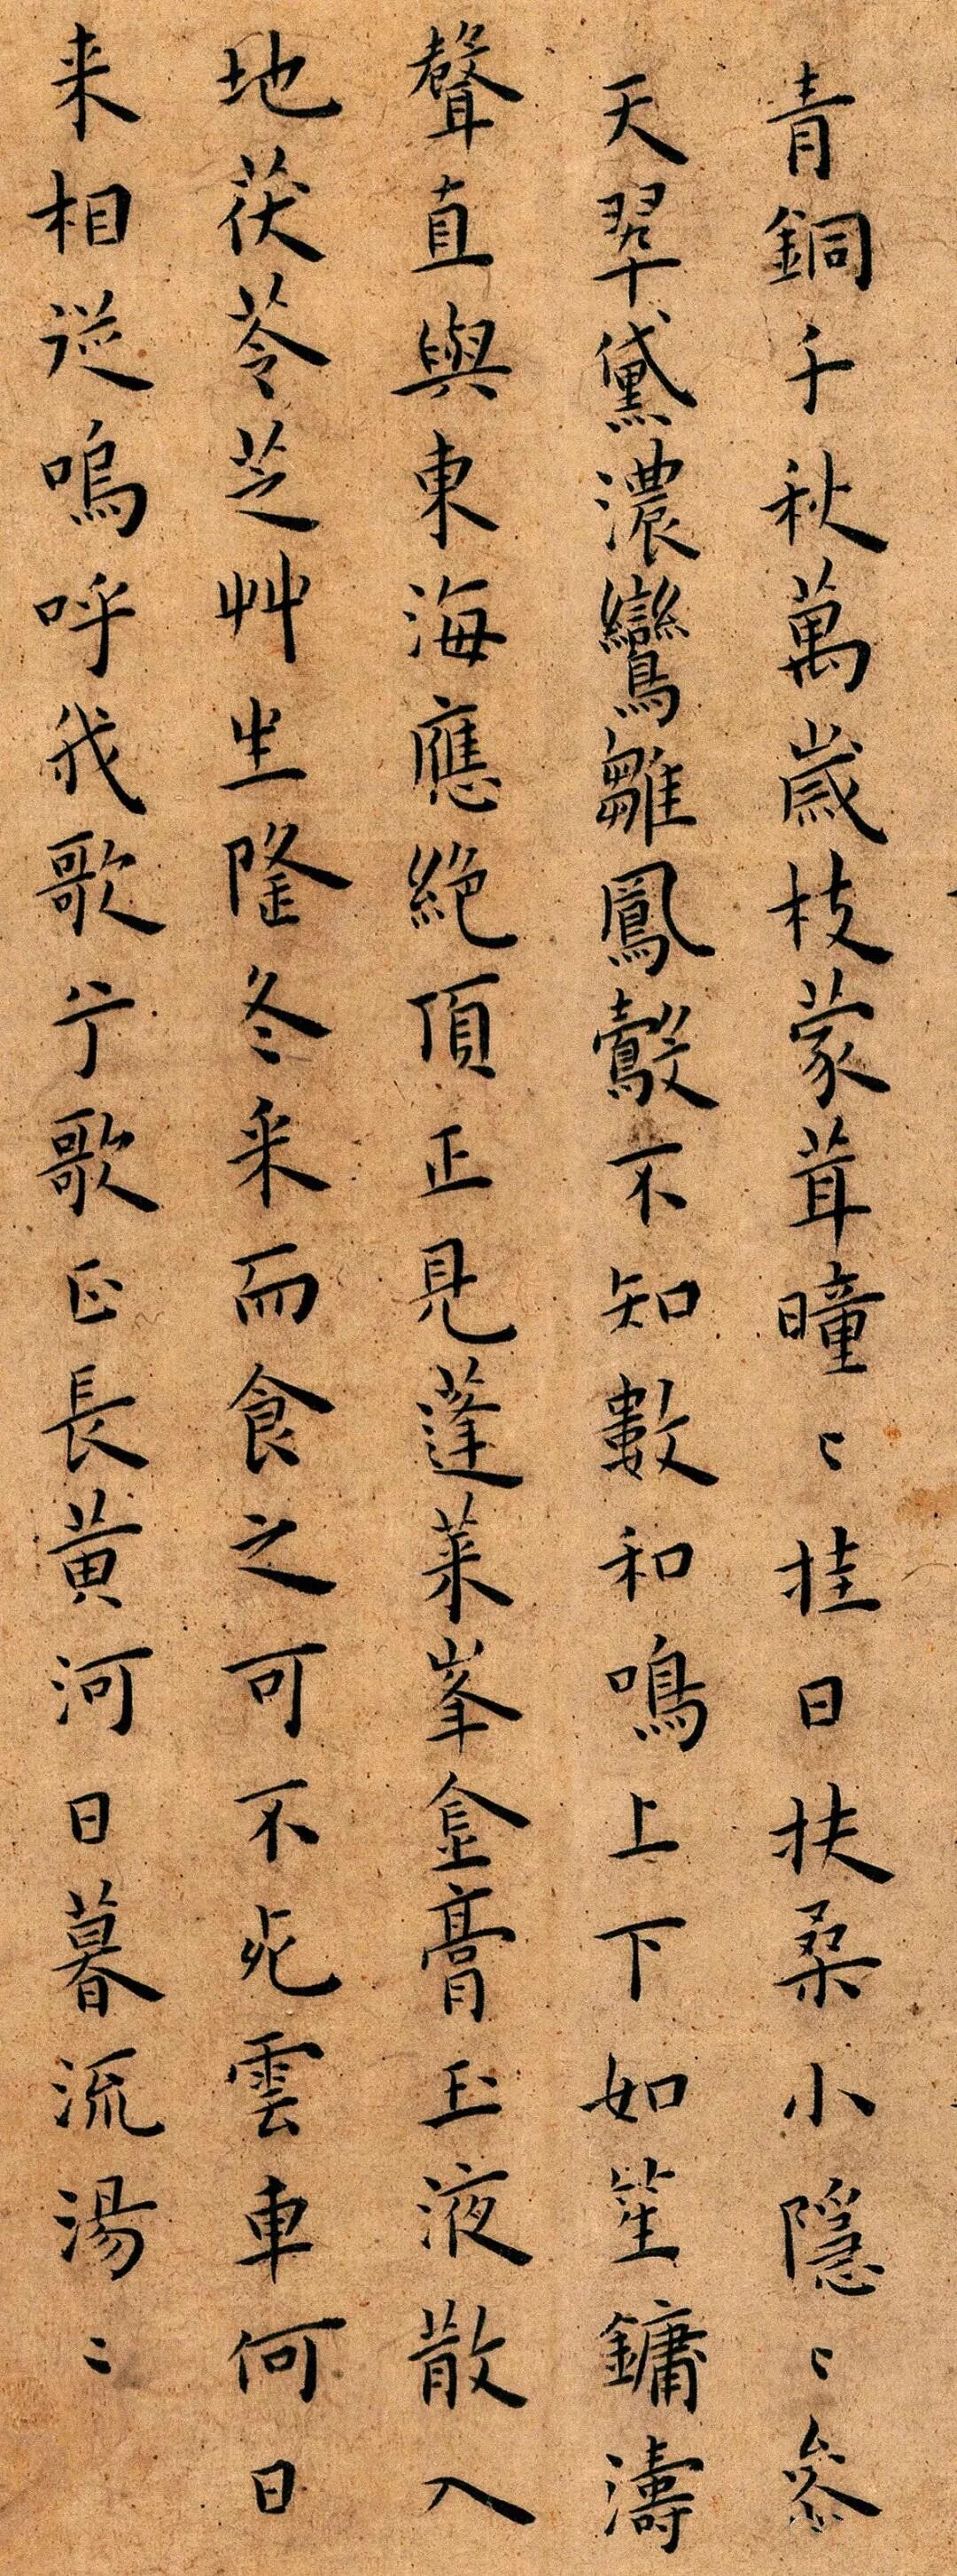 青銅千秋萬歲枝蒙茸曈〻挂日扶桑小隱〻參
天翠黛濃鸞雛鳳鷇不知數和鳴上下如笙鏞濤
聲直與東海應絕頂正見蓬萊峯金膏玉液散入
地茯苓芝艸生隆冬采而食之可不死雲車何日
来相従嗚呼我歌兮歌正長黃河日暮流湯〻